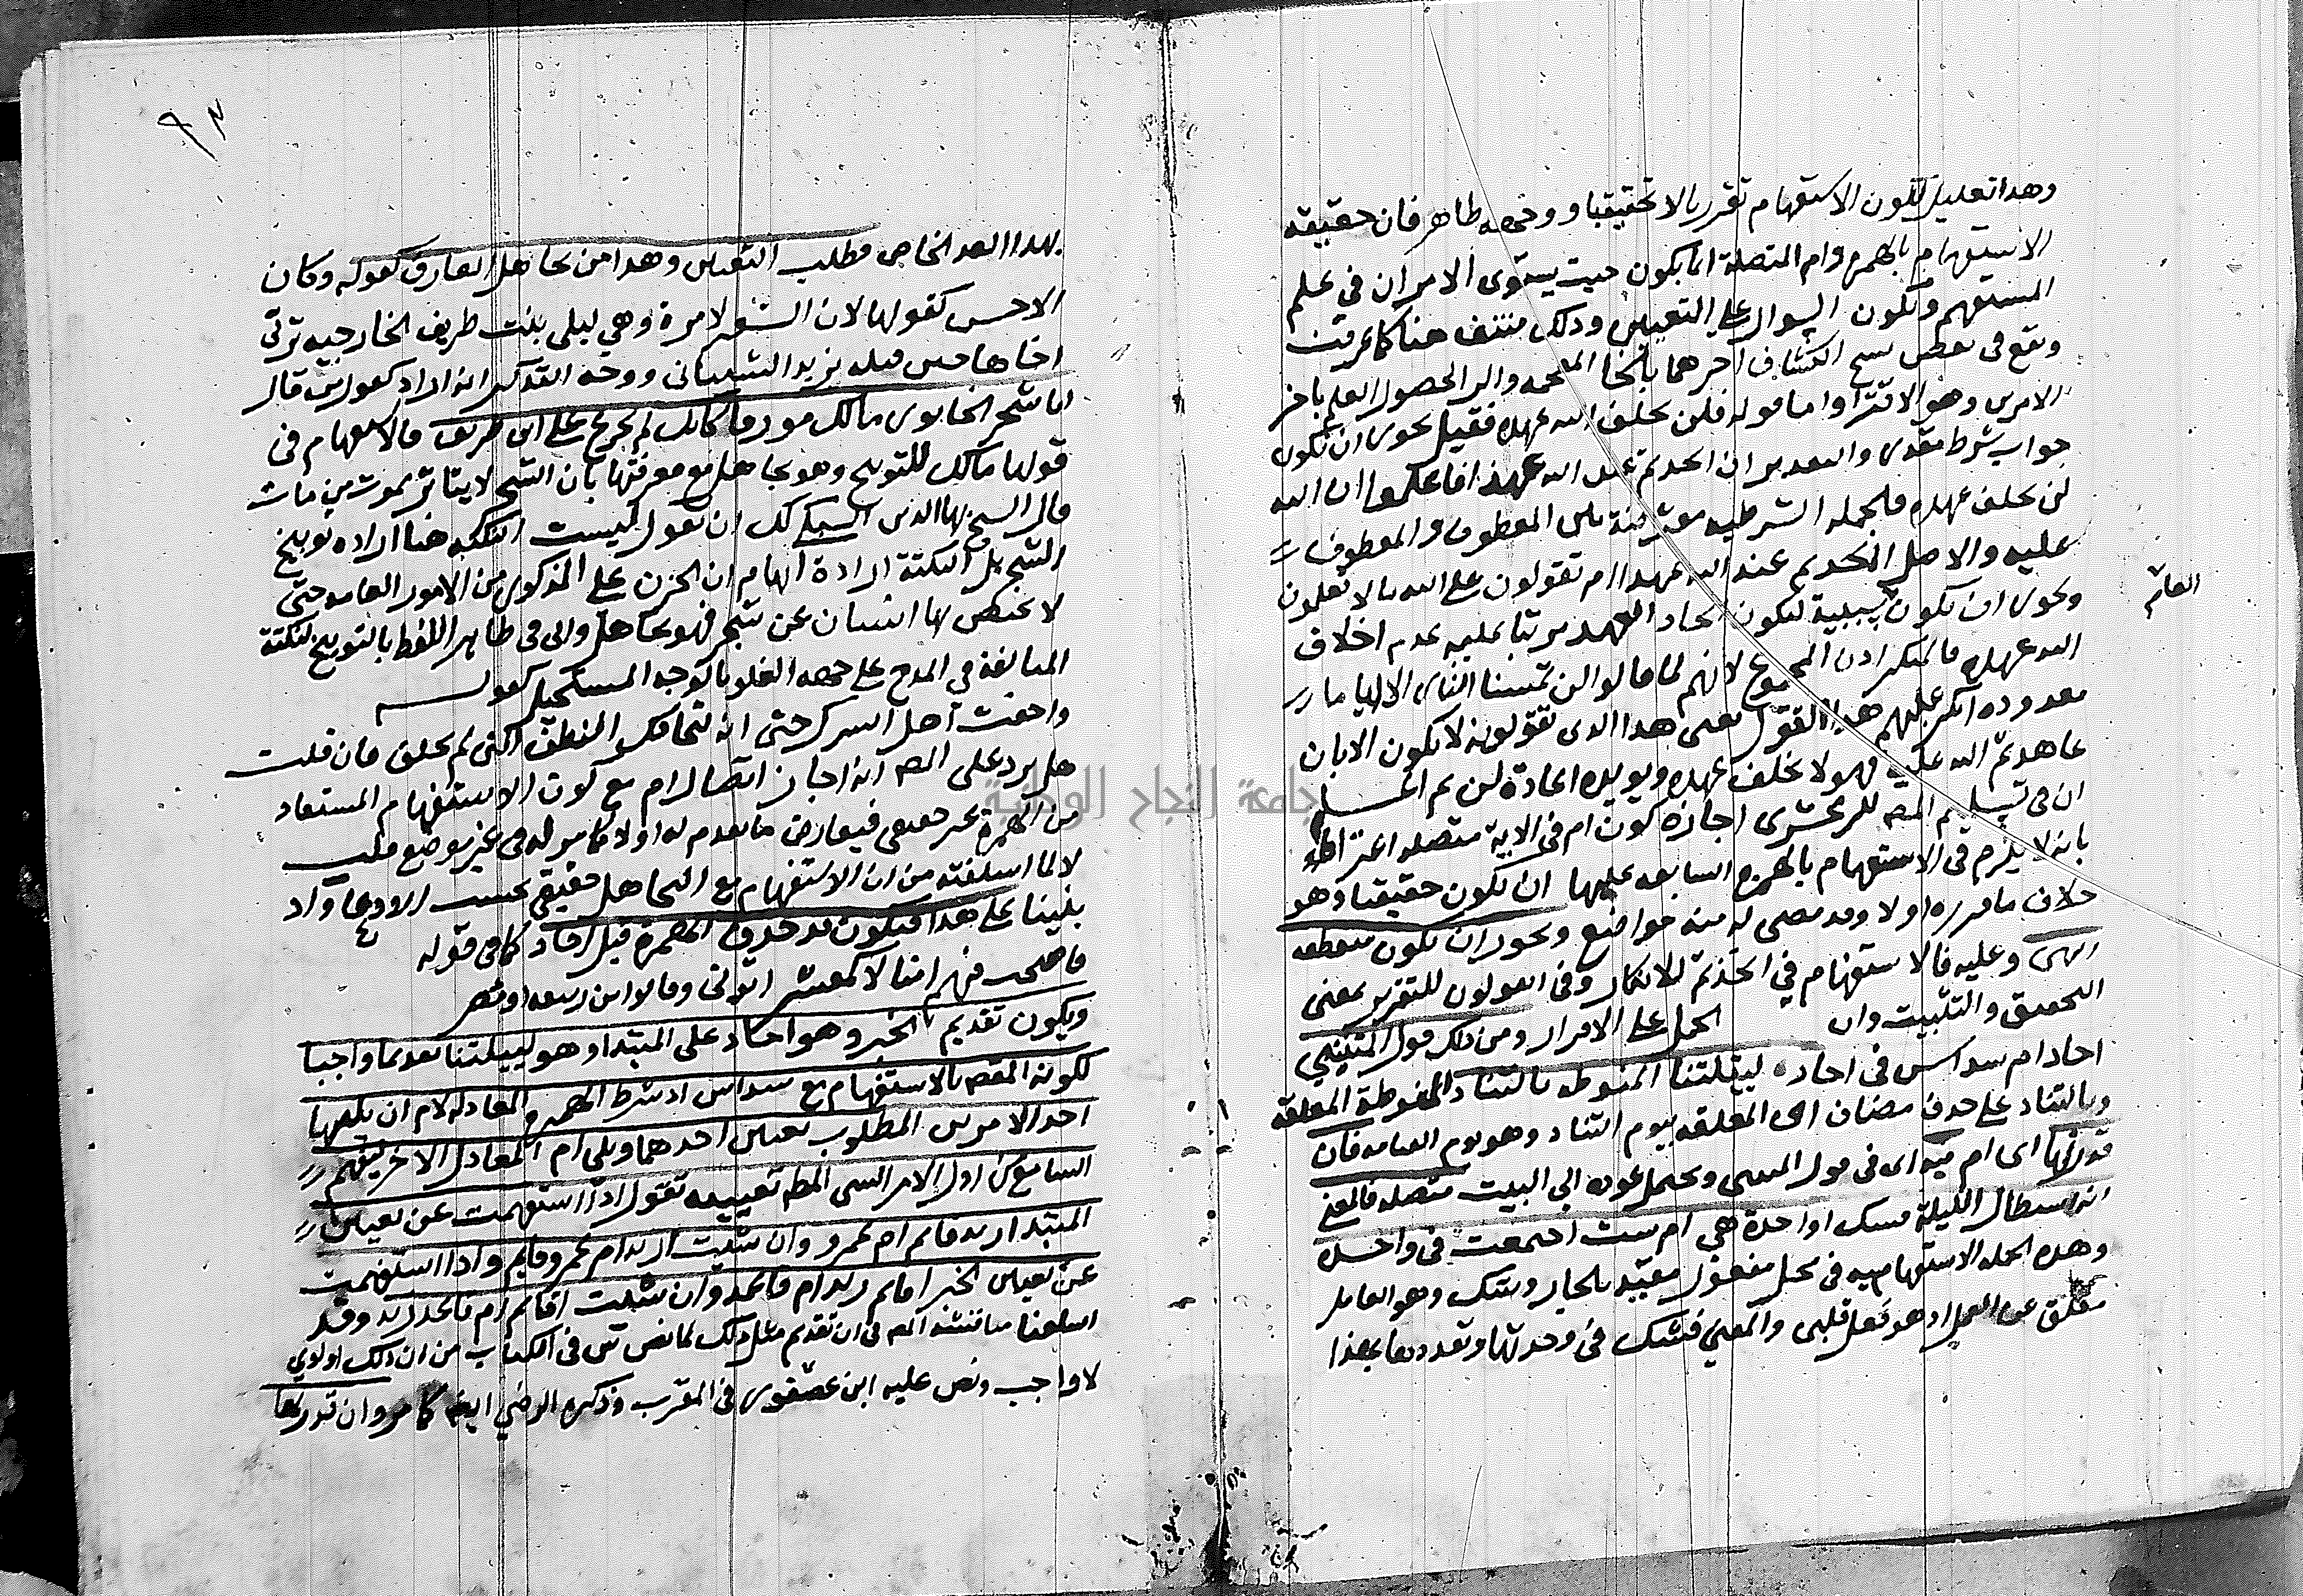 وهذا تعليل لكون الاستفهام تقريريا لا تحقيقيا ووجهه ظاهر فان حقيقة
الاستفهام بالهمزة وام المتصلة انما يكون حيث يستوى الامران في علم
المستفهم ويكون السوال على التعيين وذلك منتف هنا كما عرفت
وقع في بعض نسخ الكشاف اخرهما بالخا المعجمه والرا لحصول العلم باخر
الامرين وهو الافترا واما قوله فلن يخلف الله عهده فقيل يجوز ان تكون
جواب شرط مقدر والتقدير ان اتخذتم عند الله عهدا فاعلموا ان الله
لن يخلف عهده فالجمله الشرطيه معترضة بين المعطوف والمعطوف
عليه والاصل اتخذتم عند الله عهدا ام تقولون على الله ما لا تعلمون
ويجوز ان تكون سببية ليكون اتخاد العهد مرتبا عليه عدم اخلاف
العاشر
الله عهده فالمنكر اذن المجموع لانهم لما قالوا لن تمسنا النار الا اياما
معدوده انكر عليهم هذا القول يعنى هذا الذى تقولونه لا يكون الا بان
عاهدتم الله عليه فهو لا يخلف عهده ويويده اعادة لن ثم
ان في تسليم المص للزمخشرى اجازه كون ام في الاية متصله اعترافا
بانه لا يلزم في الاستفهام بالهمزة السابقه عليها ان يكون حقيقيا وهو
خلاف ما قرره اولا وقد مضى له منه مواضع ويجوز ان تكون منقطعه
انتهى وعليه فالاستفهام في اتخذتم للانكار وفى اتقولون للتقرير بمعنى
التحقيق والتثبيت وان الحمل على الاقرار ومن ذلك قول المتنبي
احاد ام سداس فى احاد ليبلتنا المنوطه بالتناد المنوطة المعلقة
وبالتناد على حذف مضاف اى المعلقه بيوم التناد وهو يوم القيامه فان
قدرتها اى ام فيه اى في قول المتنبى ويحتمل عوده الى البيت متصله فالمعنى
انه استطال الليلة فشك اواحدة هي ام ست اجتمعت في واحده
وهذه الجمله الاستفهاميه في محل مفعول مقيد بالجار وشك وهو العامل
معلق عن العمل اذ هو فعل قلبى والمعني فشك في وحدتها وتعددها بهذا
٩٣
بهذا العدد الخاص فطلب التعيين وهذا من تجاهل العارف كقوله وكان
الاحسن كقولها لان الشعر لامرة وهي ليلى بنت طريف الخارجيه ترثى
اخاها حين قتله يزيد الشيبانى ووجه التذكير انه اراد كقول من قال
ايا شجر الخابور مالك مورقا كانك لم تجزع على ابن طريف فالاستفهام في
قولها مالك للتوبيخ وهو تجاهل مع معرفتها بان الشجر لا يتاثر بموت من مات
قال الشيخ بها الدين السبكى لك ان تقول ليست النكته هنا اراده توبيخ
الشجر بل النكتة ارادة ايهام ان الحزن على المذكور من الامور العامه حتى
لا يختص بها انسان عن شجر فهو تجاهل واتى في ظاهر اللفظ بالتوبيخ لنكتة
المبالغة في المدح على جهه الغلو بالوجه المستحيل كقوله
واخفت اهل الشرك حتى انه لتخافك النطف التى لم تخلق فان قلت
هل يرد على المص انه اجاز اتصال ام مع كون الاستفهام المستفاد
من الهمزة غير حقيقى فيعارض ما تقدم له اولا كما مر له في غير موضع قلت
لا لما اسلفته من ان الاستفهام مع التجاهل حقيقي بحسب الادعا واذ
بنينا على هذا فيكون قد حذف الهمزة قبل احاد كما في قوله
فاصبحت فيهم امنا لا كمعشر اتونى وقالوا من ربيعه او مضر
ويكون تقديم الخبر وهو احاد على المبتدا وهو لييلتنا تقديما واجبا
لكونه المقص بالاستفهام مع سداس اذ شرط الهمزة المعادلة لام ان يليها
احد الامرين المطلوب تعيين احدهما ويلى ام المعادل الاخر ليفهم
السامع من اول الامر الشى المط تعيينه تقول اذا استفهمت عن تعيين
المبتدا ازيد قايم ام عمرو وان شيت ازيد ام عمرو قايم واذا استفهمت
عن تعيين الخبر اقايم زيد ام قاعد وان شيت اقايم ام قاعد زيد وقد
اسلفنا مناقشه المص في ان تقديم مثل ذلك لما نص س في الكتاب من ان ذلك اولوي
لا واجب ونص عليه ابن عصفور في المقرب وذكره الرضي ايضا كما مر وان قدرتها